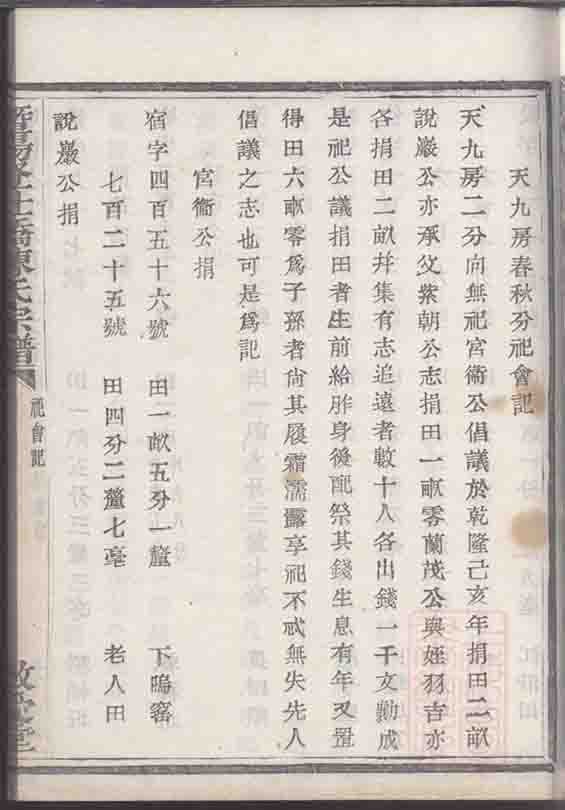 天九房春秋分祀會記
天九房二分向無祀宮衞公倡議於乾隆己亥年捐田二畝
說巖公亦承父紫朝公志捐田一畝零蘭茂公與姪羽吉亦
各捐田二畝幷集有志追遠者數十人各出錢一千文勷成
是祀公議捐田者生前給胙身後配祭其錢生息有年又置
得田六畝零爲子孫者尙其履霜濡露享祀不忒無失先人
倡議之志也可是爲記
宮衞公捐
宿字四百五十六號 田一畝五分一釐 下塢窰
七百二十五號 田四分二釐七毫 老人田
說巖公捐
陳氏宗譜
祀會記